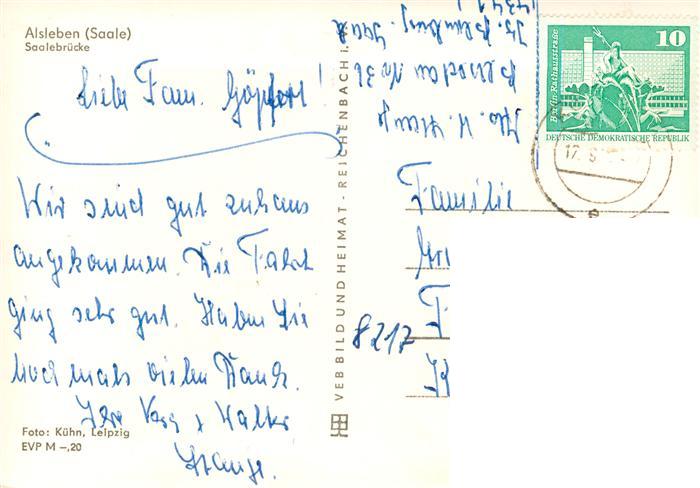 Alsleben (Saale)
Saalebrücke
Liebe Fam. Göpfert!
Wir sind gut zuhaus
angekommen. Die Fahrt
ging sehr gut. Haben Sie
noch mals vielen Dank.
Ihre Vera & Walter
Stange.
Foto: Kühn, Leipzig
EVP M –,20
VEB BILD UND HEIMAT · REICHENBACH i.
Abs. W. Stange
No 36
4341
10
Berlin-Rathausstraße
DEUTSCHE DEMOKRATISCHE REPUBLIK
17.
Familie
8217